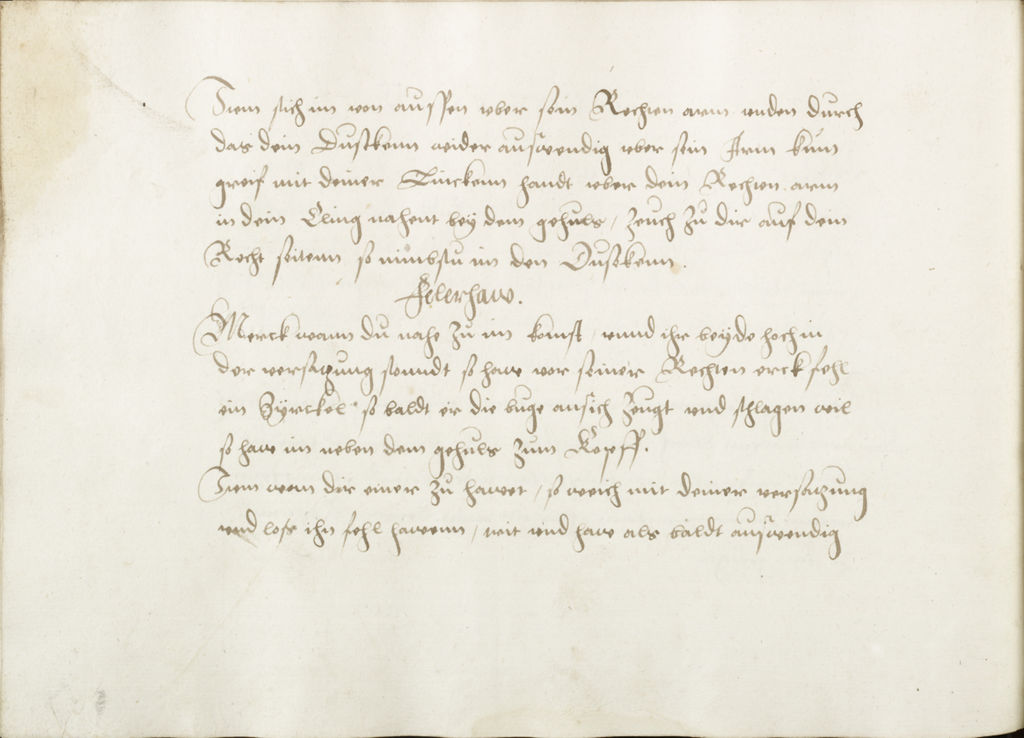 Item stich im von aussen uber sein Rechten arm unden durch
das dein Dusekenn wider auswendig uber sein Arm kum
greif mit deiner Linckenn handt uber dein Rechten arm
in dein Cling nahent bey dem gehuls, zeuch zu dir auf dein
Recht seitenn so nimbstu im den Dusekenn.
Felerhaw.
Merck wann du nahe zu im komst, unnd ihr beyde hoch in
der versatzung stenndt so haw vor seiner Rechten eck fehl
ein Zyrckel so baldt er die buge an sich zeugt und schlagen wil
so haw im neben dem gehuls zum Kopff.
Item wan dir einer zu hawet, so weich mit deiner versatzung
und loss ihn fehl hawenn, rit und haw als baldt auswendig